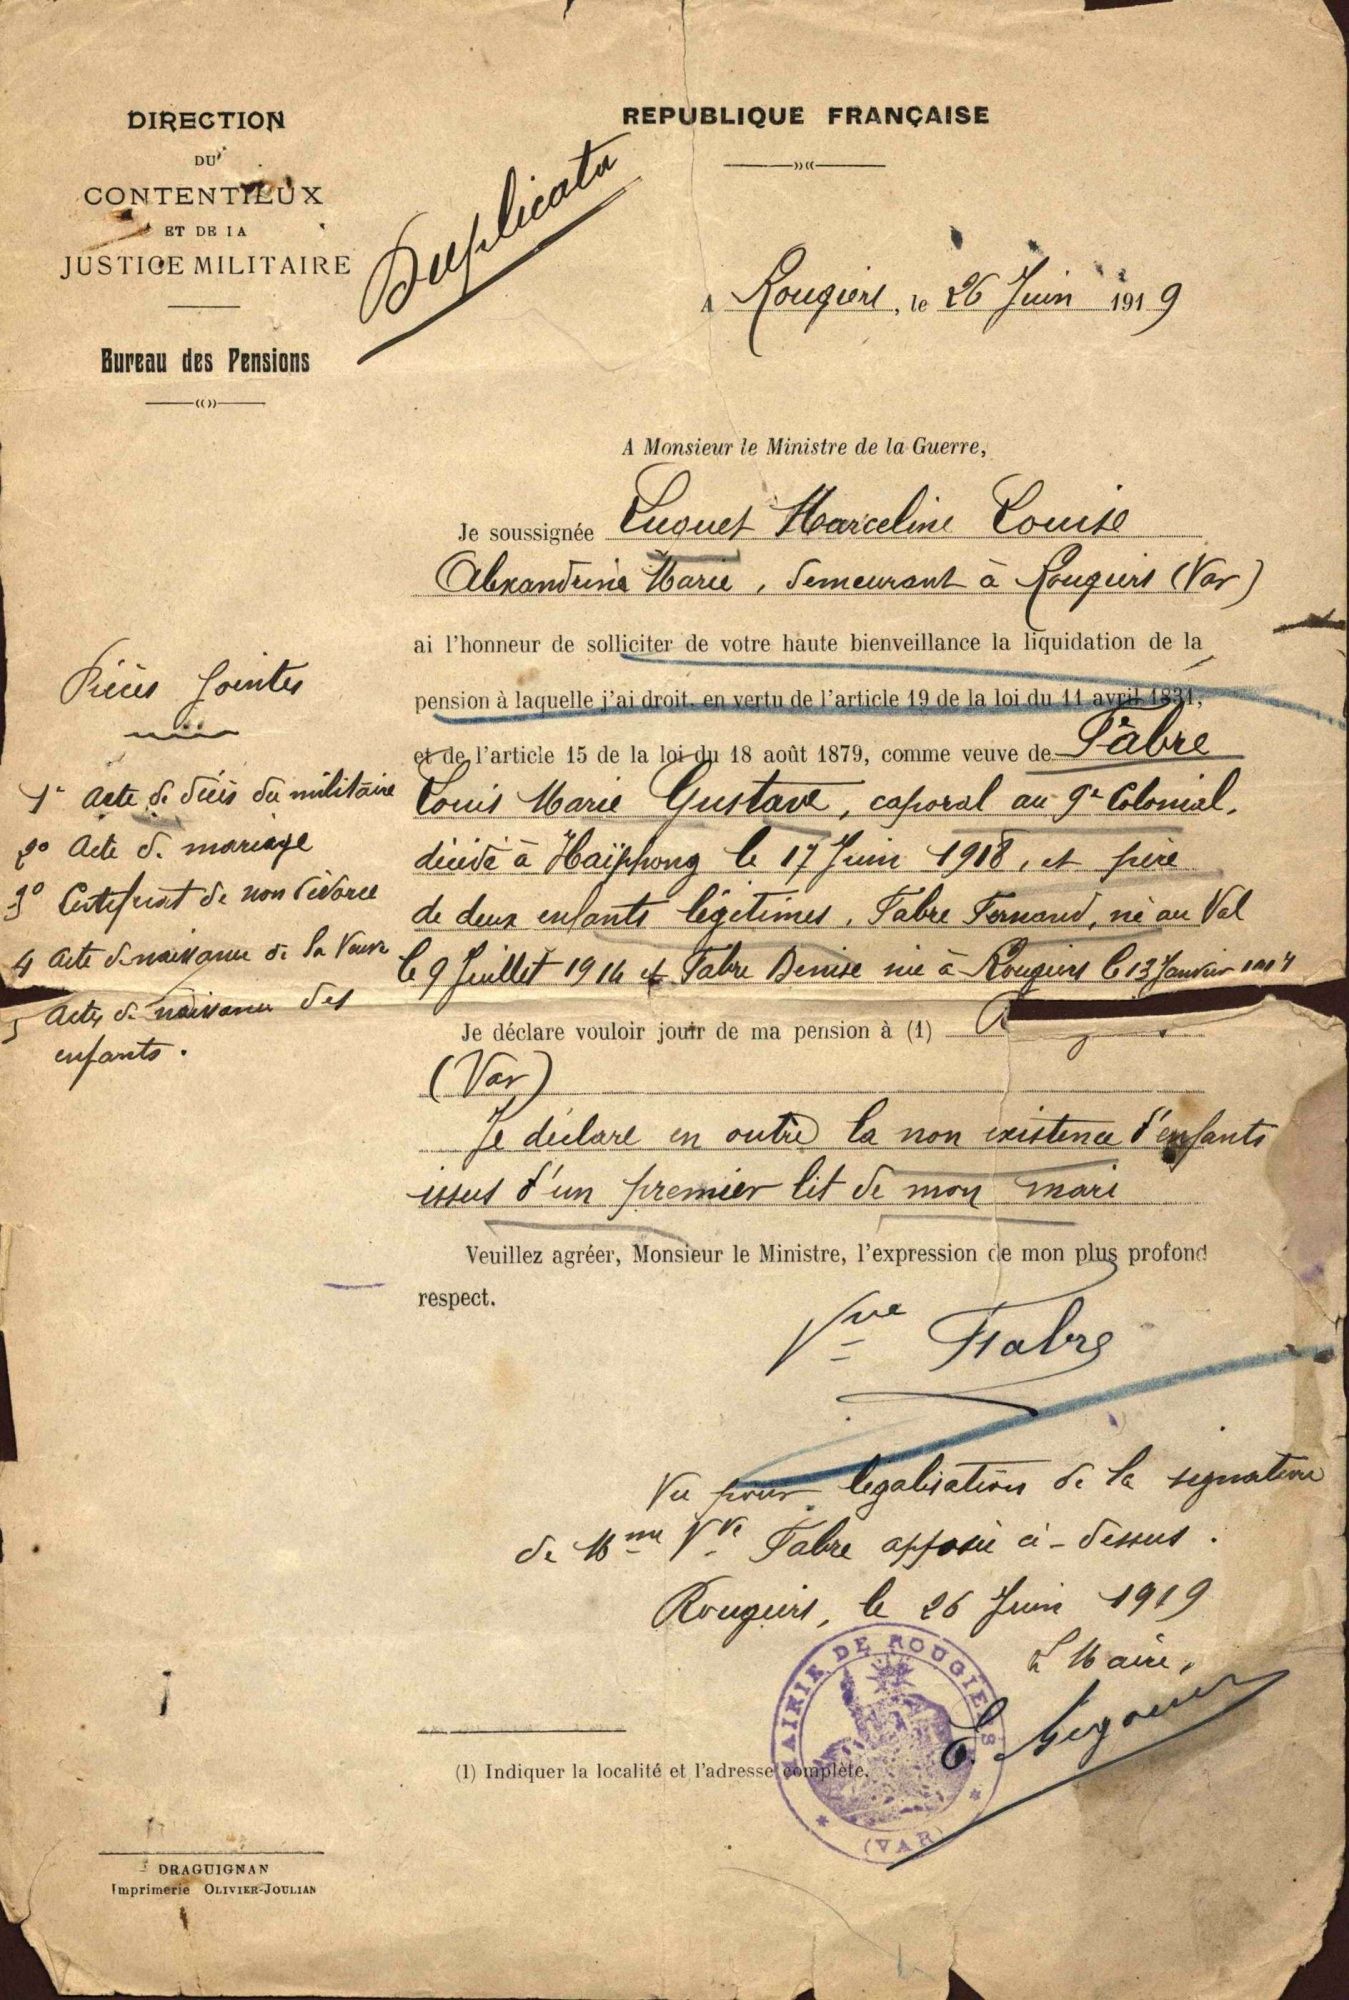 DIRECTION
DU
CONTENTIEUX
ET DE LA
JUSTICE MILITAIRE
Bureau des Pensions
Duplicata
REPUBLIQUE FRANÇAISE
A Rougiers, le 26 Juin 1919
A Monsieur le Ministre de la Guerre,
Je soussignée Luquet Marceline Louise
Alexandrine Marie, demeurant à Rougiers (Var)
ai l'honneur de solliciter de votre haute bienveillance la liquidation de la
pension à laquelle j'ai droit, en vertu de l'article 19 de la loi du 11 avril 1831,
et de l'article 15 de la loi du 18 août 1879, comme veuve de Fabre
Louis Marie Gustave, caporal au 9e Colonial,
décédé à Haïphong le 17 Juin 1918, et père
de deux enfants légitimes, Fabre Fernand, né au Val
le 9 Juillet 1914 et Fabre Denise née à Rougiers le 13 Janvier
Je déclare vouloir jouir de ma pension à (1)
(Var)
Je déclare en outre la non existence d'enfants
issus d'un premier lit de mon mari
Veuillez agréer, Monsieur le Ministre, l'expression de mon plus profond
respect.
Vve Fabre
Pièces Jointes
1° Acte de décès du militaire
2° Acte de mariage
3° Certificat de non divorce
4 Acte de naissance de la Veuve
5 Actes de naissance des
enfants.
Vu pour légalisation de la signature
de Mme Vve Fabre apposée ci-dessus.
Rougiers, le 26 Juin 1919
Le Maire,
MAIRIE DE ROUGIERS
(VAR)
(1) Indiquer la localité et l'adresse complète.
DRAGUIGNAN
Imprimerie OLIVIER-JOULIAN